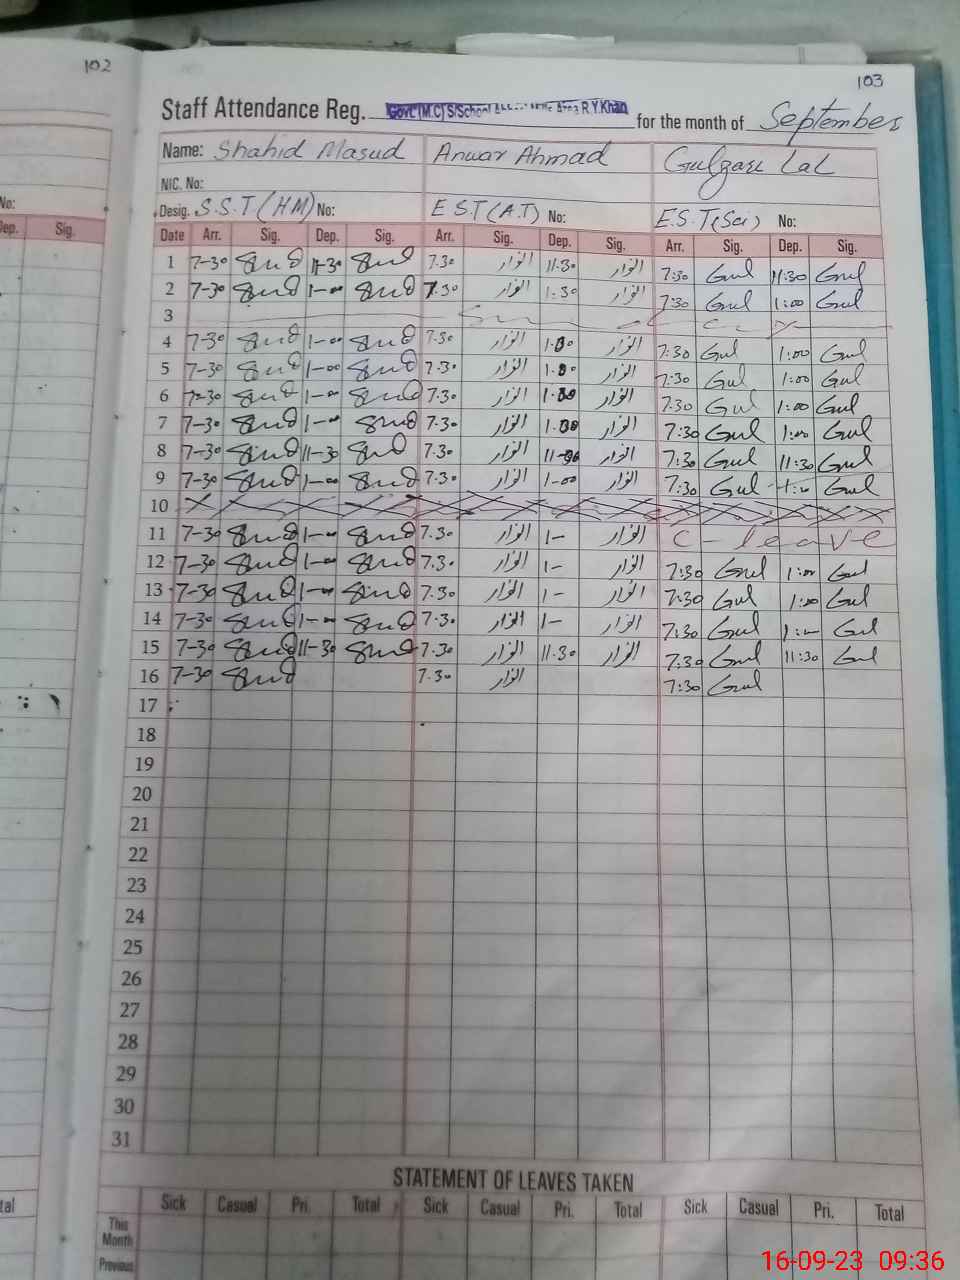 102
103
Staff Attendance Reg. Govt. (M.C) S/School R.Y.Khan for the month of September
Name: Shahid Masud Anwar Ahmad Gulzari Lal
NIC. No:
Desig. S.S.T (HM) No: E S.T (A.T) No: E.S.T (Sci) No:
Date Arr. Sig. Dep. Sig. Arr. Sig. Dep. Sig. Arr. Sig. Dep. Sig.
1 7-30 11-30 7.30 انوار 11.30 انوار 7:30 Gul 11:30 Gul
2 7-30 1-00 7.30 انوار 1:30 انوار 7:30 Gul 1:00 Gul
3 Sunday
4 7-30 1-00 7.30 انوار 1.00 انوار 7:30 Gul 1:00 Gul
5 7-30 1-00 7.30 انوار 1.00 انوار 7:30 Gul 1:00 Gul
6 7-30 1-00 7.30 انوار 1.00 انوار 7:30 Gul 1:00 Gul
7 7-30 1-00 7.30 انوار 1.00 انوار 7:30 Gul 1:00 Gul
8 7-30 11-30 7.30 انوار 11-30 انوار 7:30 Gul 11:30 Gul
9 7-30 1-00 7.30 انوار 1-00 انوار 7:30 Gul 1:00 Gul
10
11 7-30 1-00 7.30 انوار 1- انوار C-leave
12 7-30 1-00 7.30 انوار 1- انوار 7:30 Gul 1:00 Gul
13 7-30 1-00 7.30 انوار 1- انوار 7:30 Gul 1:00 Gul
14 7-30 1-00 7.30 انوار 1- انوار 7:30 Gul 1:00 Gul
15 7-30 11-30 7.30 انوار 11.30 انوار 7:30 Gul 11:30 Gul
16 7-30 7.30 انوار 7:30 Gul
17
18
19
20
21
22
23
24
25
26
27
28
29
30
31
STATEMENT OF LEAVES TAKEN
Sick Casual Pri. Total Sick Casual Pri. Total Sick Casual Pri. Total
This Month
Previous
16-09-23 09:36